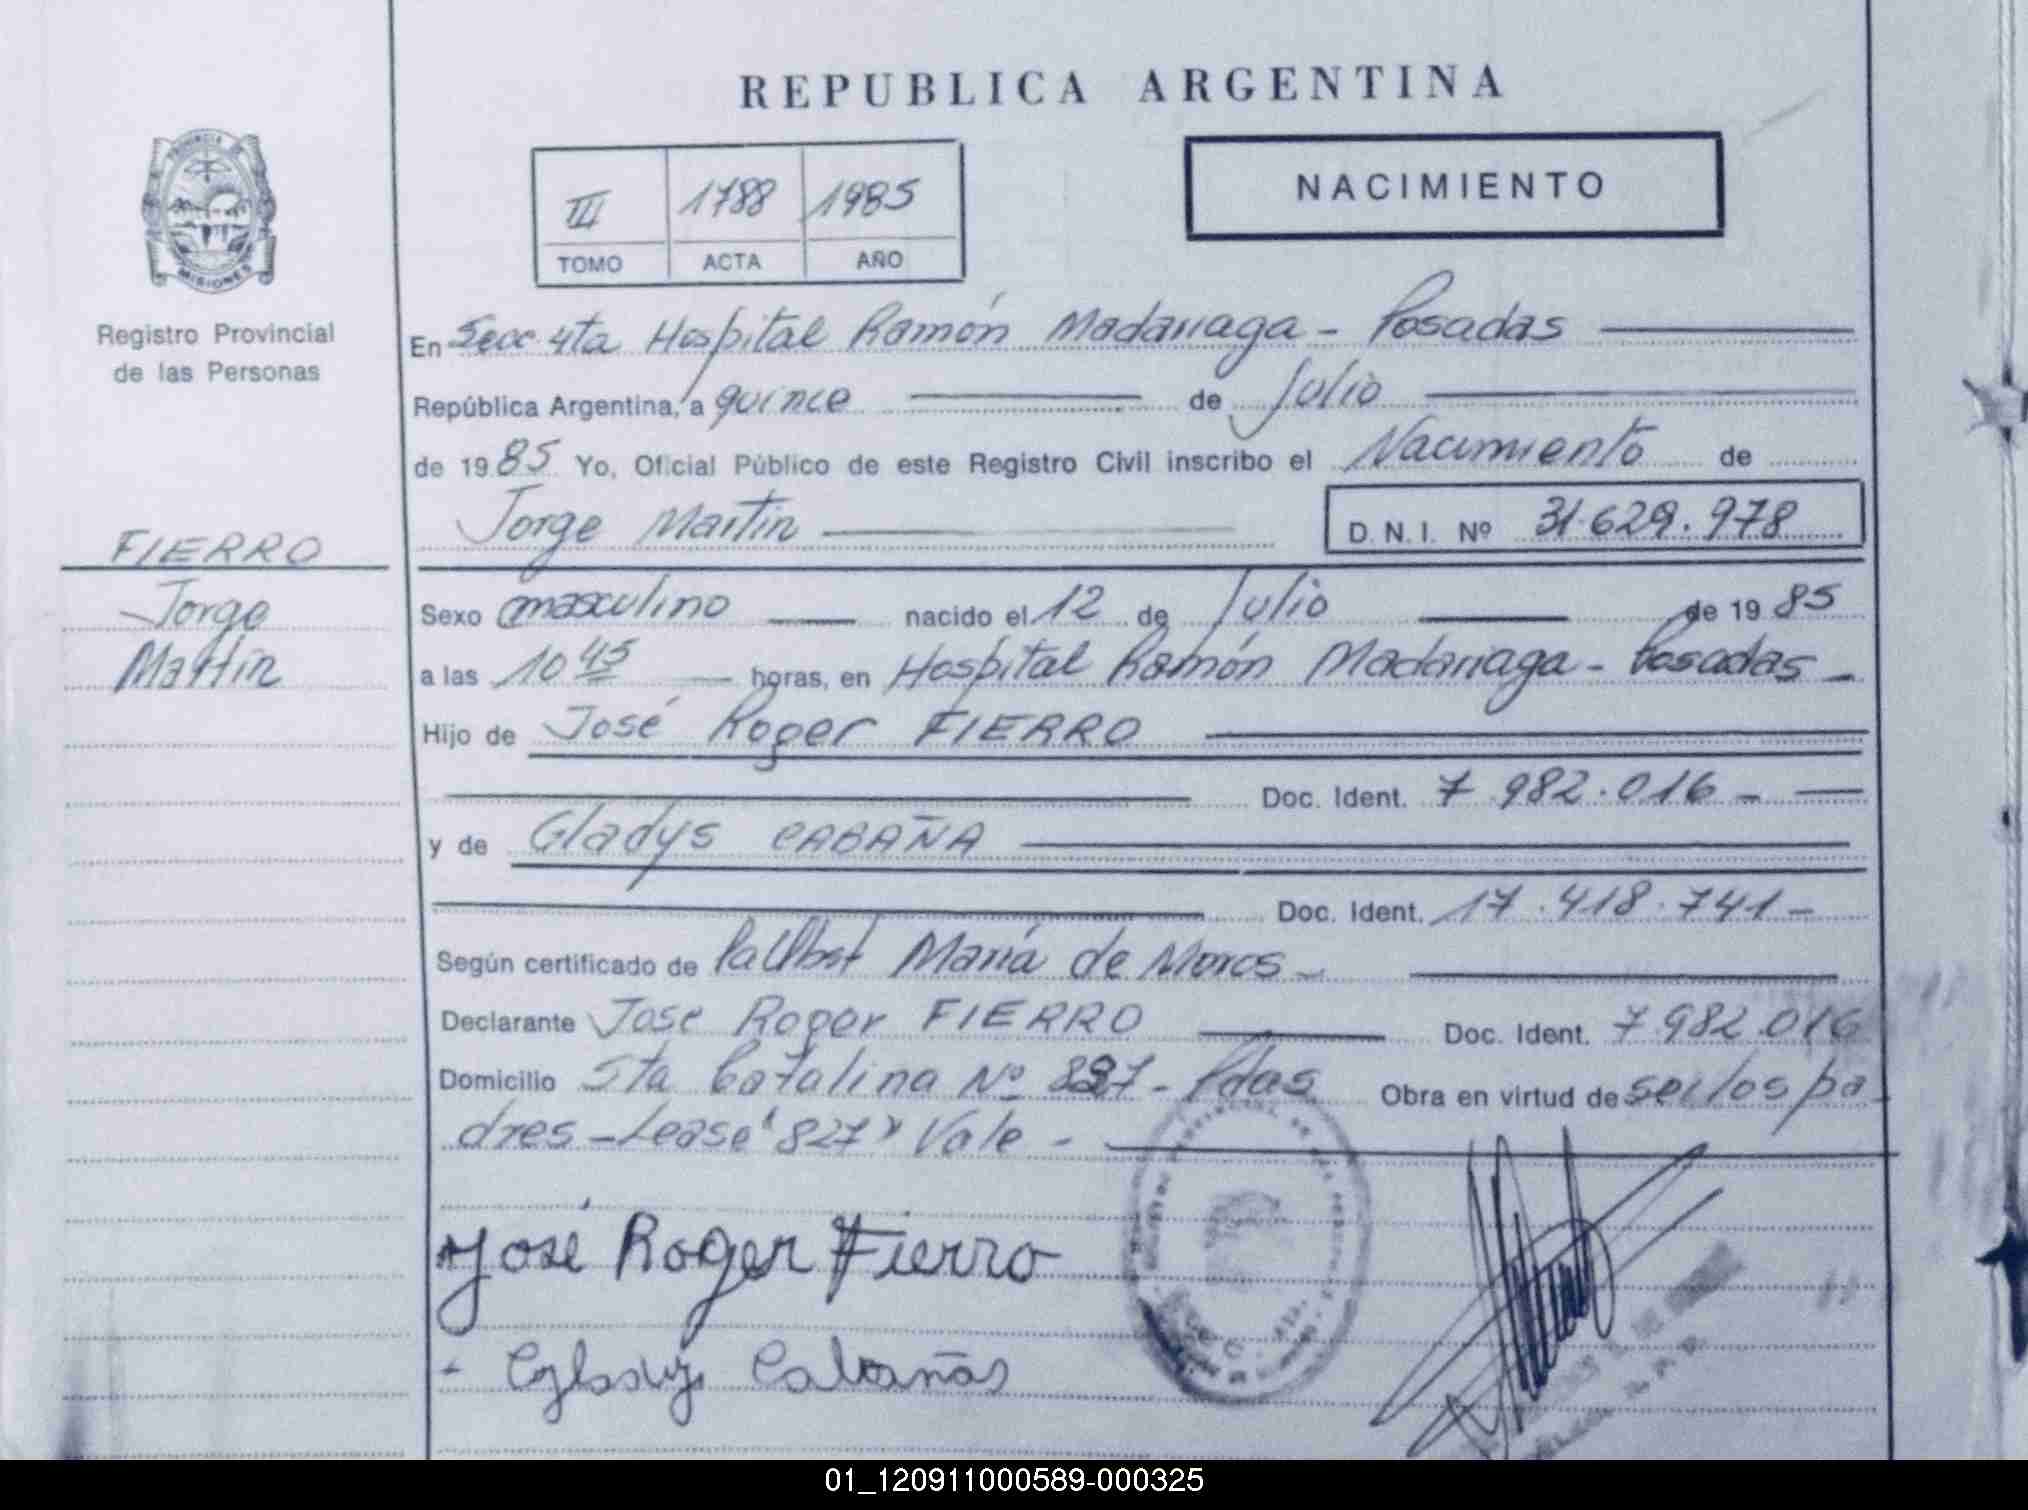 REPUBLICA ARGENTINA
PROVINCIA
MISIONES
Registro Provincial
de las Personas
III 1788 1985
TOMO ACTA AÑO
NACIMIENTO
En Secc 4ta Hospital Ramón Madariaga - Posadas
República Argentina, a quince de Julio
de 1985 Yo, Oficial Público de este Registro Civil inscribo el Nacimiento de
Jorge Martín D. N. I. Nº 31.629.978
FIERRO
Jorge
Martín
Sexo masculino nacido el 12 de Julio de 1985
a las 10 45 horas, en Hospital Ramón Madariaga - Posadas -
Hijo de José Roger FIERRO
Doc. Ident. 7 982.016 -
y de Gladys CABAÑA
Doc. Ident. 17.418.741 -
Según certificado de María de Moros -
Declarante José Roger FIERRO Doc. Ident. 7982.016
Domicilio Sta Catalina Nº 827 - Pdas Obra en virtud de ser los pa-
dres - Lease "827" Vale -
José Roger Fierro
- Gladys Cabañas
01_120911000589-000325